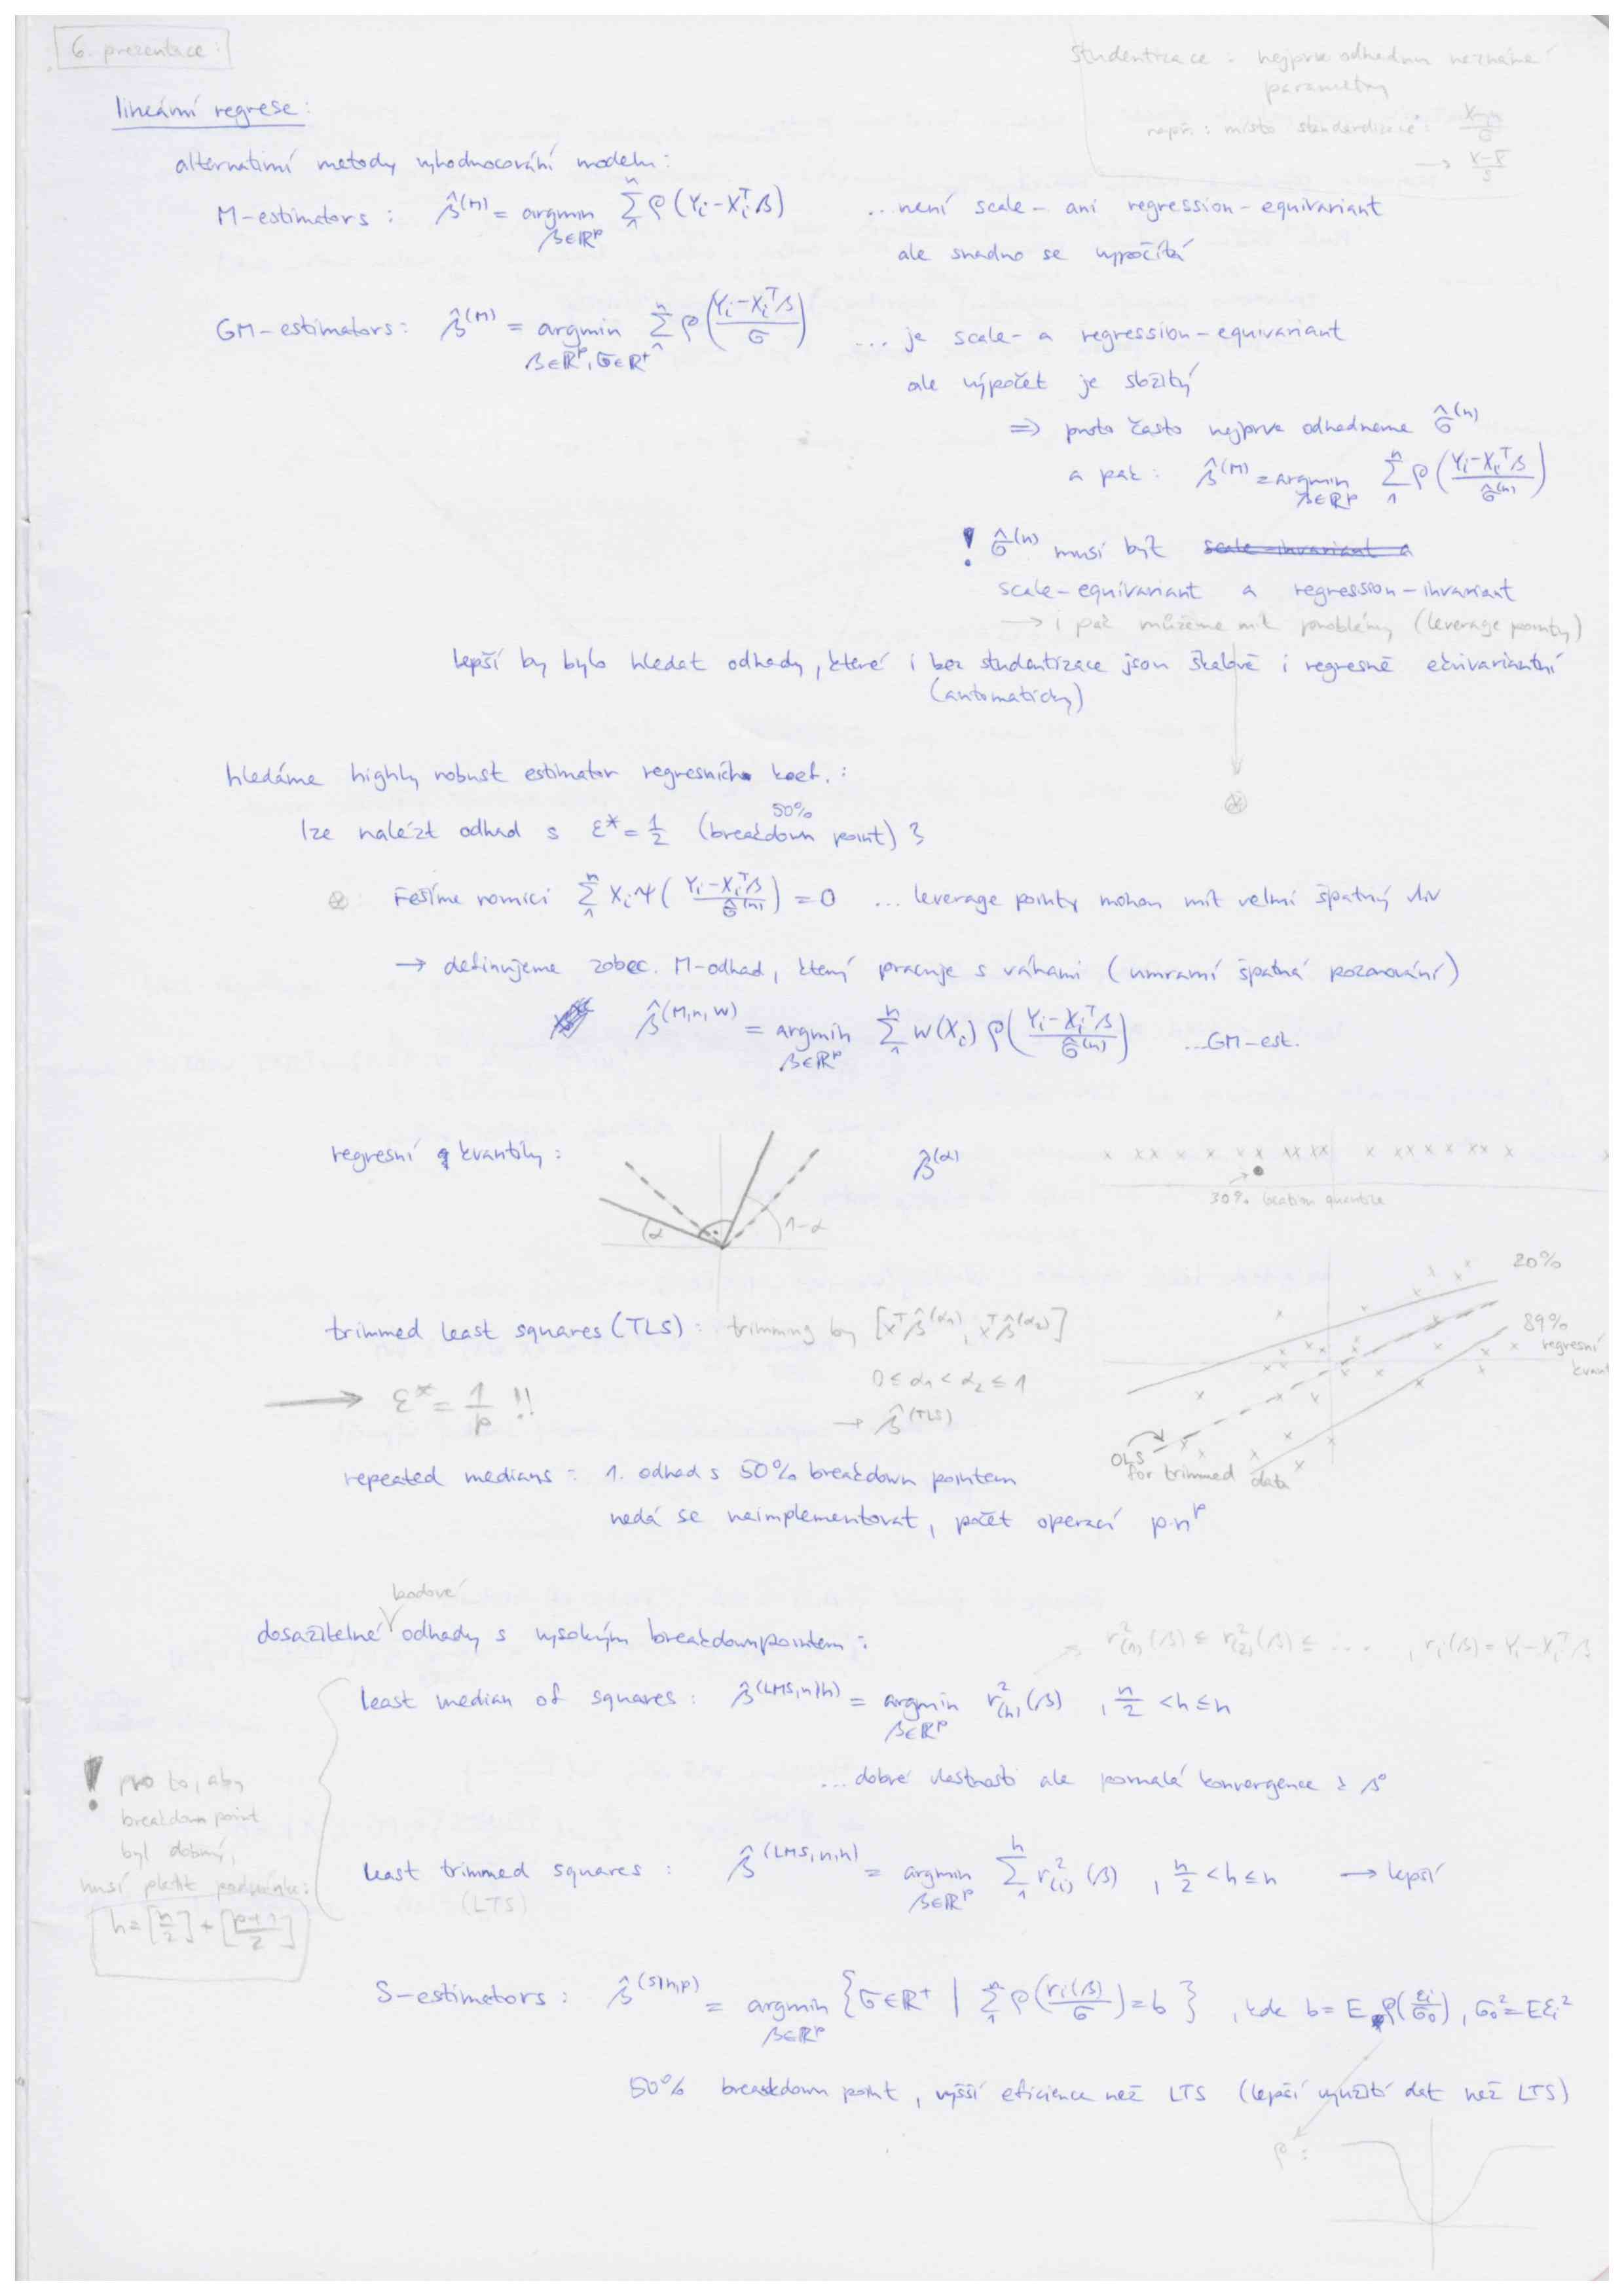 6. prezentace:
studentizace - nejprve odhadnu neznámé
parametry
např.: místo standardizace: (X-μ)/σ
→ (X-X̄)/S
lineární regrese:
alternativní metody vyhodnocování modelu:
M-estimators: β̂^(M) = argmin_{β∈ℝ^p} Σ_1^n ρ(Y_i - X_i^T β) ...není scale- ani regression-equivariant
ale snadno se vypočítá
GM-estimators: β̂^(M) = argmin_{β∈ℝ^p, σ∈ℝ^+} Σ_1^n ρ((Y_i - X_i^T β)/σ) ... je scale- a regression-equivariant
ale výpočet je složitý
⇒ proto často nejprve odhadneme σ̂^(n)
a pak: β̂^(M) = argmin_{β∈ℝ^p} Σ_1^n ρ((Y_i - X_i^T β)/σ̂^(n))
! σ̂^(n) musí být scale-invariant a
scale-equivariant a regression-invariant
→ i pak můžeme mít problémy (leverage pointy)
lepší by bylo hledat odhady, které i bez studentizace jsou škálově i regresně ekvivariantní
(automaticky)
hledáme highly robust estimator regresních koef.:
50%
lze nalézt odhad s ε* = 1/2 (breakdown point)?
⊗ řešíme rovnici Σ_1^n X_i ψ((Y_i - X_i^T β)/σ̂^(n)) = 0 ... leverage pointy mohou mít velmi špatný vliv
→ definujeme zobec. M-odhad, který pracuje s váhami (umravní špatná pozorování)
β̂^(M,n,w) = argmin_{β∈ℝ^p} Σ_1^n w(X_i) ρ((Y_i - X_i^T β)/σ̂^(n)) ...GM-est.
regresní kvantily: β̂^(α)
α 1-α
30% location quantile
20%
89%
regresní
kvant
trimmed least squares (TLS): trimming by [x^T β̂^(α_1), x^T β̂^(α_2)]
0 ≤ α_1 < α_2 ≤ 1
→ ε* = 1/p !!
→ β̂^(TLS)
OLS
for trimmed data
repeated medians: 1. odhad s 50% breakdown pointem
nedá se naimplementovat, počet operací p·n^p
bodové
dosažitelné odhady s vysokým breakdownpointem:
r²_(1)(β) ≤ r²_(2)(β) ≤ ... , r_i(β) = Y_i - X_i^T β
least median of squares: β̂^(LMS,n,h) = argmin_{β∈ℝ^p} r²_(h)(β) , n/2 < h ≤ n
...dobré vlastnosti ale pomalá konvergence k β⁰
! pro to, aby
breakdown point
byl dobrý,
musí platit podmínka:
h = [n/2] + [(p+1)/2]
least trimmed squares: β̂^(LMS,n,h) = argmin_{β∈ℝ^p} Σ_1^h r²_(i)(β) , n/2 < h ≤ n → lepší
(LTS)
S-estimators: β̂^(S,n,ρ) = argmin_{β∈ℝ^p} {σ∈ℝ^+ | Σ_1^n ρ(r_i(β)/σ) = b} , kde b = E ρ(ε_i/σ_0), σ_0² = Eε_i²
50% breakdown point, vyšší eficience než LTS (lepší využití dat než LTS)
ρ: